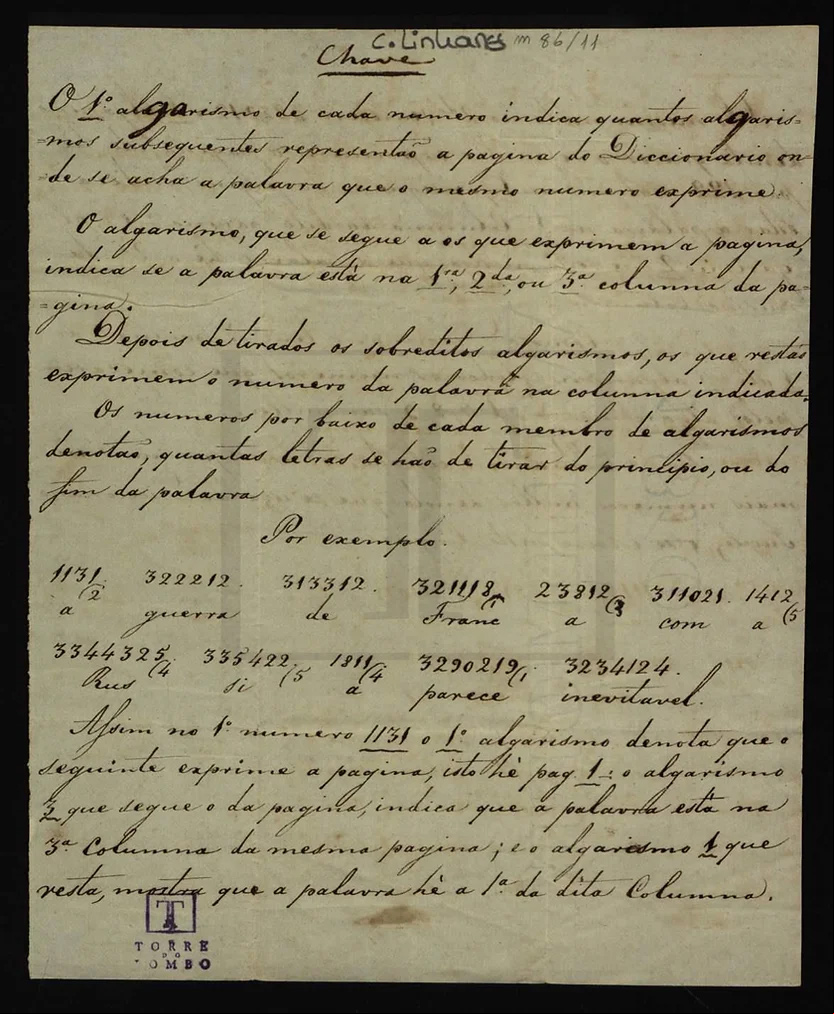 C. Linhares m 86/11
Chave
O 1º algarismo de cada numero indica quantos algaris=
=mos subsequentes representaõ a pagina do Diccionario on=
=de se acha a palavra que o mesmo numero exprime.
O algarismo, que se segue a os que exprimem a pagina,
indica se a palavra está na 1ra, 2da, ou 3a columna da pa=
=gina.
Depois de tirados os sobreditos algarismos, os que restaõ
exprimem o numero da palavra na columna indicada.
Os numeros por baixo de cada membro de algarismos
denotaõ, quantas letras se haõ de tirar do principio, ou do
fim da palavra
Por exemplo.
1131. 322212. 313312. 321118 23812 311021. 1412
(2 (1 (3 (5
a guerra de Franc a com a
3344325. 335422. 1811. 3290219 3234124.
(4 (5 (4 (1
Rus si a parece inevitavel.
Assim no 1º numero 1131 o 1º algarismo denota que o
seguinte exprime a pagina, isto hé pag. 1: o algarismo
3 que segue o da pagina, indica que a palavra está na
3a Columna da mesma pagina; e o algarismo 1 que
resta, mostra que a palavra hé a 1a da dita Columna.
T
TORRE
DO
TOMBO